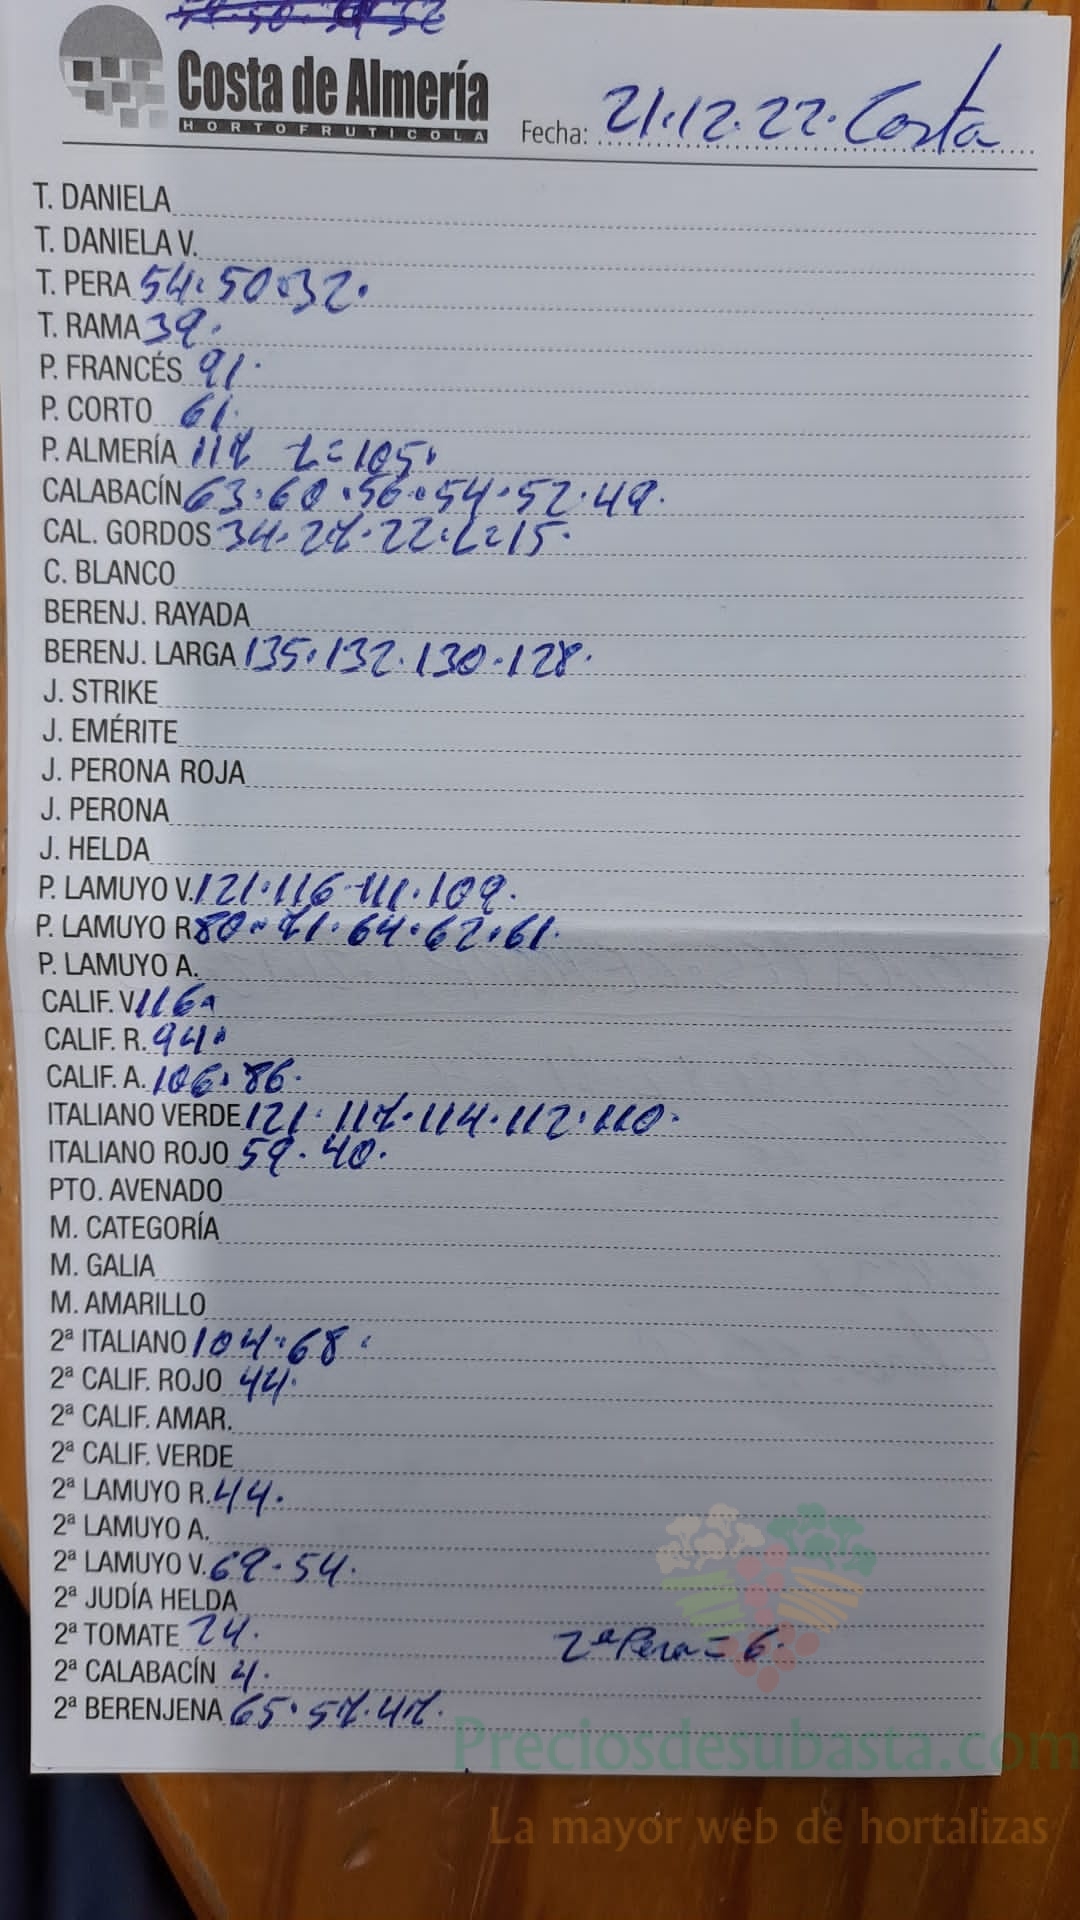 Costa de Almería
HORTOFRUTICOLA
Fecha: 21.12.22. Costa
T. DANIELA
T. DANIELA V.
T. PERA 54.50.32.
T. RAMA 39.
P. FRANCÉS 91.
P. CORTO 61.
P. ALMERÍA 117 2=105.
CALABACÍN 63.60.56.54.52.49.
CAL. GORDOS 34.27.22.2=15.
C. BLANCO
BERENJ. RAYADA
BERENJ. LARGA 135.132.130.128.
J. STRIKE
J. EMÉRITE
J. PERONA ROJA
J. PERONA
J. HELDA
P. LAMUYO V. 121.116-111.109.
P. LAMUYO R 80.71.64.62.61.
P. LAMUYO A.
CALIF. V 116.
CALIF. R. 94.
CALIF. A. 106.86.
ITALIANO VERDE 121.117.114.112.110.
ITALIANO ROJO 59.40.
PTO. AVENADO
M. CATEGORÍA
M. GALIA
M. AMARILLO
2ª ITALIANO 104.68.
2ª CALIF. ROJO 44.
2ª CALIF. AMAR.
2ª CALIF. VERDE
2ª LAMUYO R. 44.
2ª LAMUYO A.
2ª LAMUYO V. 69.54.
2ª JUDÍA HELDA
2ª TOMATE 24. 2ª Pera = 6.
2ª CALABACÍN 4.
2ª BERENJENA 65.57.47.
Preciosdesubasta.com
La mayor web de hortalizas